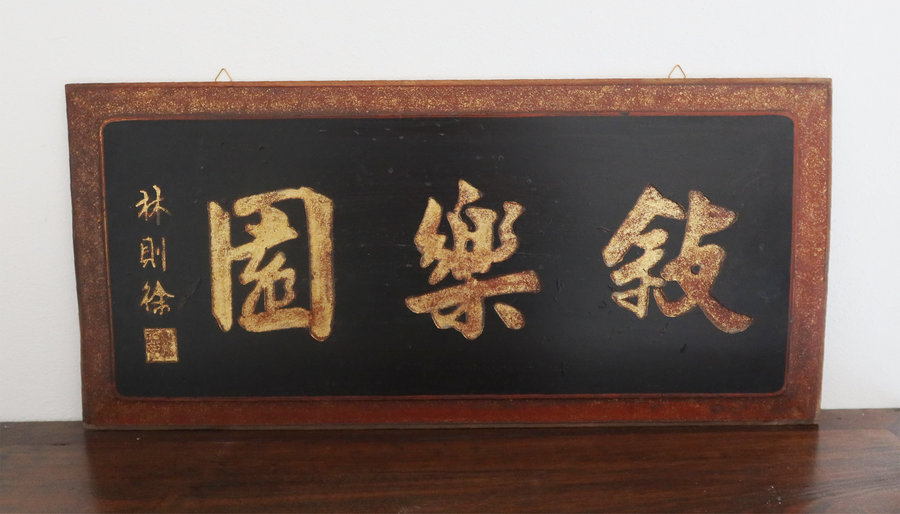 敍樂園
林則徐